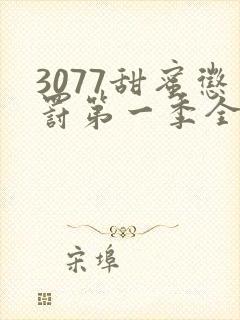 3077甜蜜惩
罚第一季全
宋埠